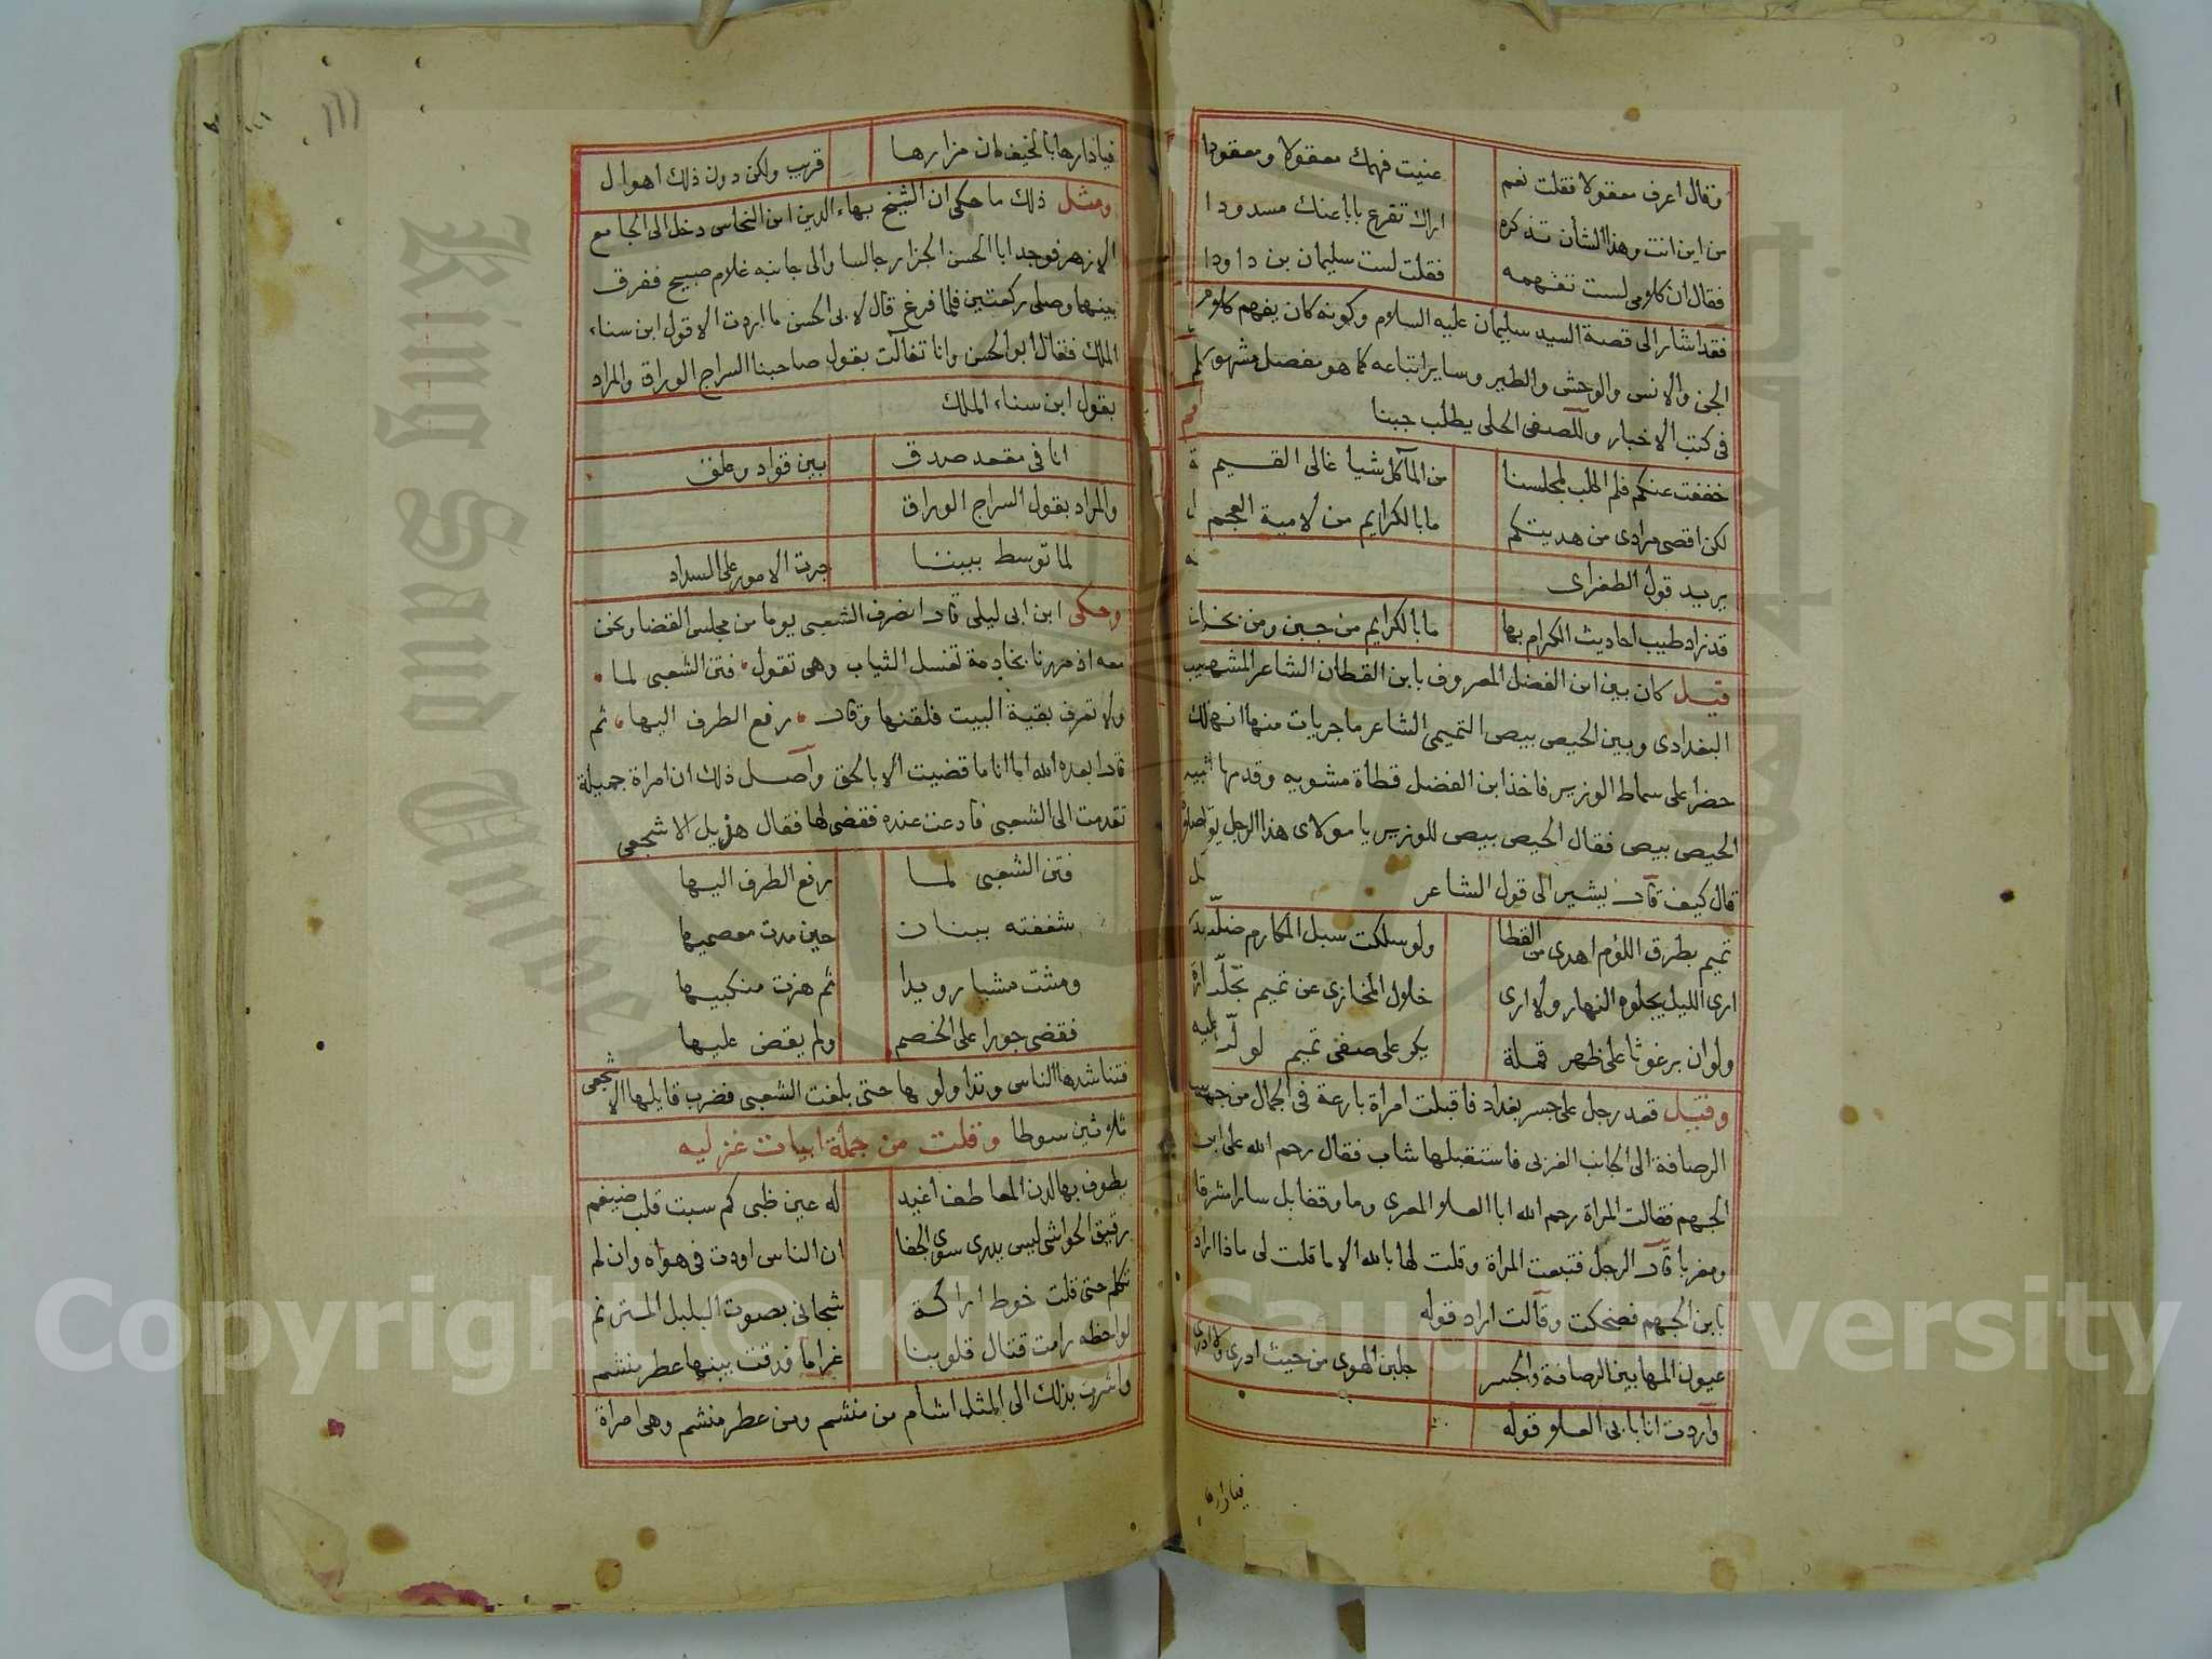 وقال اعرف معقولا فقلت نعم عنيت فهمك معقولا ومعقودا
من اين انت وهذا الشان تذكره اراك تقرع بابا عنك مسدودا
فقال ان كلامى لست تفهمه فقلت لست سليمان بن داودا
فقد اشار الى قصة السيد سليمان عليه السلام وكونه كان يفهم كلام
الجن والانس والوحش والطير وساير اتباعه كما هو مفصل مشهور
فى كتب الاخبار وللصفى الحلى يطلب جبنا
خففت عنكم فلم اطلب لمجلسنا من المآكل شيا غالى القيم
لكن اقصى مرادى من هديتكم ما بالكرايم من لامية العجم
يريد قول الطغراى
قد زاد طيب احاديث الكرام بها ما بالكرايم من جبن ومن بخل
قيل كان بين ابن الفضل المعروف بابن القطان الشاعر المشهور
البغدادى وبين الحيص بيص التميمى الشاعر ماجريات منها انه
حضر على سماط الوزير فاخذ ابن الفضل قطاة مشويه وقدمها الى
الحيص بيص فقال الحيص بيص للوزير يا مولاى هذا الرجل
قال كيف قال يشير الى قول الشاعر
تميم بطرق اللؤم اهدى من القطا ولو سلكت سبل المكارم ضلت
ارى الليل يجلوه النهار ولا ارى خلال المخازى عن تميم تجلت
ولو ان برغوثا على ظهر قملة يكر على صفى تميم لولت
وقيل قعد رجل على جسر بغداد فاقبلت امراة بارعة فى الجمال من جهة
الرصافة الى الجانب الغربى فاستقبلها شاب فقال رحم الله على ابن
الجهم فقالت المراة رحم الله ابا العلا المعرى وما وقفا بل سارا مشرقا
ومغربا قال الرجل فتبعت المراة وقلت لها بالله الا ما قلت لى ماذا اراد
بابن الجهم فضحكت وقالت اراد قوله
عيون المها بين الرصافة والجسر جلبن الهوى من حيث ادرى ولا ادرى
واردت انا بابى العلا قوله
فيادارها
١١١
فيادارها بالخيف ان مزارها قريب ولكن دون ذلك اهوال
ومثل ذلك ما حكى ان الشيخ بهاء الدين ابن النحاس دخل الى الجامع
الازهر فوجد ابا الحسن الجزار جالسا والى جانبه غلام صبيح ففرق
بينهما وصلى ركعتين فلما فرغ قال لابى الحسن ما اردت الا قول ابن سناء
الملك فقال ابو الحسن وانا تفالت بقول صاحبنا السراج الوراق والمراد
بقول ابن سناء الملك
انا فى مقعد صدق بين قواد وعلق
والمراد بقول السراج الوراق
لما توسط بيننا جرت الامور على السداد
وحكى ابن ابى ليلى قال انصرف الشعبى يوما من مجلس القضا ونحن
معه اذ مررنا بخادمة تغسل الثياب وهى تقول فتن الشعبى لما
ولا تعرف بقية البيت فلقنها وقال رفع الطرف اليها ثم
قال ابعده الله اما انا ما قضيت الا بالحق واصل ذلك ان امراة جميلة
تقدمت الى الشعبى فادعت عنده فقضى لها فقال هزيل الاشجعى
فتن الشعبى لما رفع الطرف اليها
شغفته ببنان حين مدت معصميها
ومشت مشيا رويدا ثم هزت منكبيها
فقضى جورا على الخصم ولم يقض عليها
فتناشدها الناس وتداولوها حتى بلغت الشعبى فضرب قايلها الاشجعى
ثلاثين سوطا وقلت من جملة ابيات غزليه
يطوف بها لدن المعاطف اغيد له عين ظبى كم سبت قلب ضيغم
رقيق الحواشى ليس يدرى سوى الجفا ان الناس اودت فى هواه وان لم
تكلم حتى قلت خوط اراكة شجانى بصوت البلبل المترنم
لواحظه رامت قتال قلوبنا غراما فدقت بينها عطر منشم
واشرت بذلك الى المثل اشام من منشم ومن عطر منشم وهى امراة